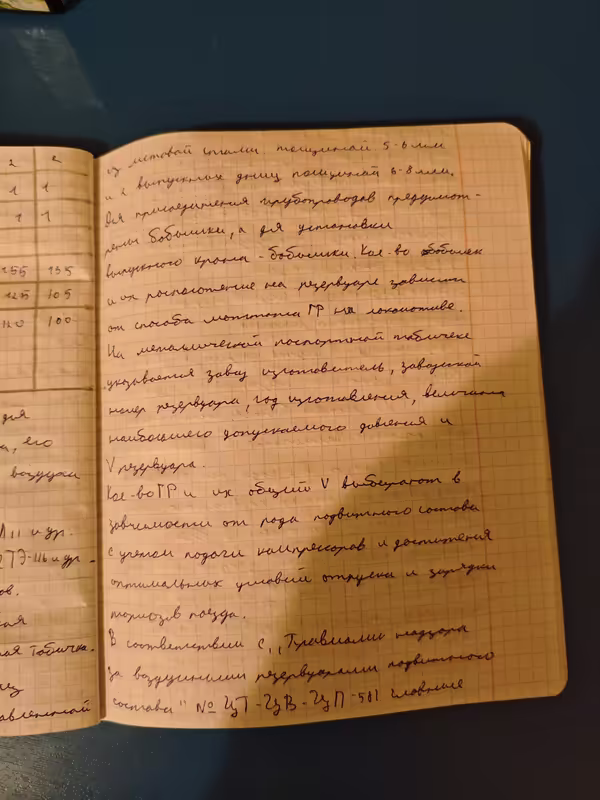 2 2
1 1
1 1
155 135
125 105
120 100
для
а, его
воздухи
М11 и др.
2ТЭ-116 и др.
ов.
ая
ная табичка.
авленной
из листовой стали толщиной 5-6 мм
и 2 выпуклых днищ толщиной 6-8 мм.
Для присоединения трубопроводов предусмот-
рены бобышки, а для установки
выпускного крана - бобышки. Кол-во бобышек
и их расположение на резервуаре зависит
от способа монтажа ГР на локомотиве.
На металлической паспортной табличке
указывается завод изготовитель, заводской
номер резервуара, год изготовления, величина
наибольшего допускаемого давления и
V резервуара.
Кол-во ГР и их общий V выбирают в
зависимости от рода подвижного состава
с учетом подачи компрессоров и достижения
оптимальных условий отпуска и зарядки
тормозов поезда.
В соответствии с „Правилами надзора
за воздушными резервуарами подвижного
состава" № ЦТ-ЦВ-ЦП-581 главные